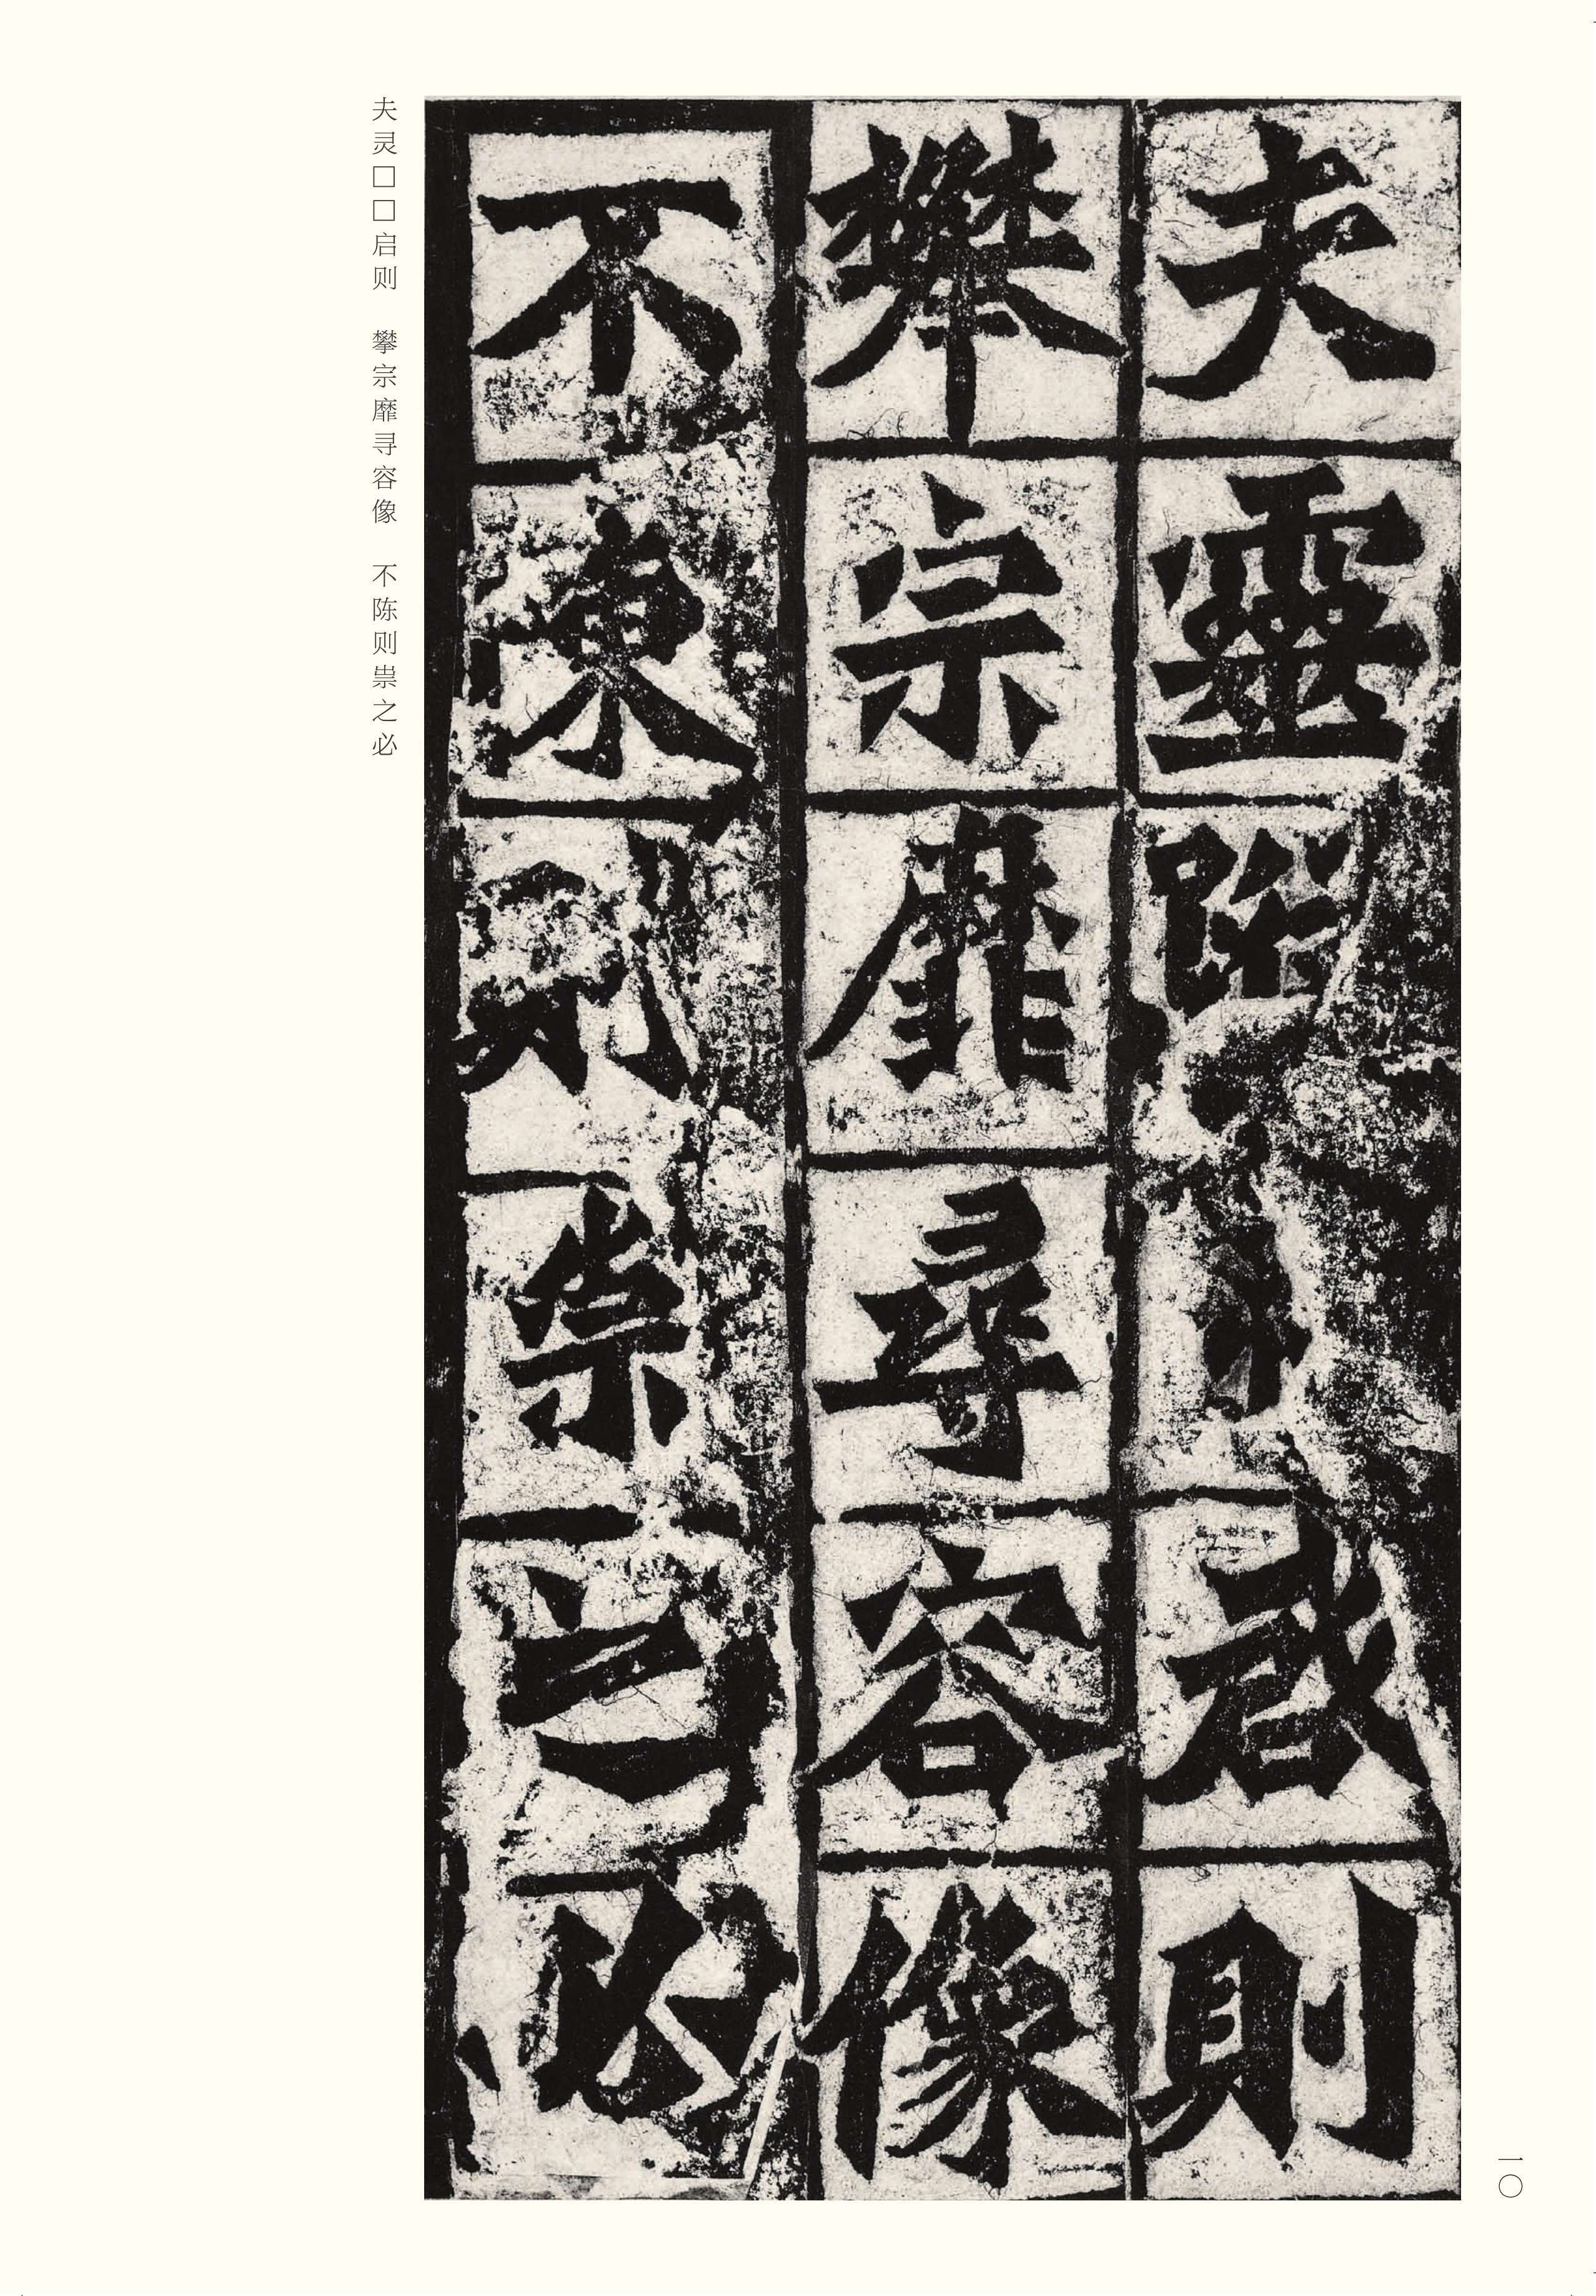 夫靈啓則
攀宗靡尋容像
不陳則祟之必
夫灵□□启则 攀宗靡寻容像 不陈则祟之必
一〇